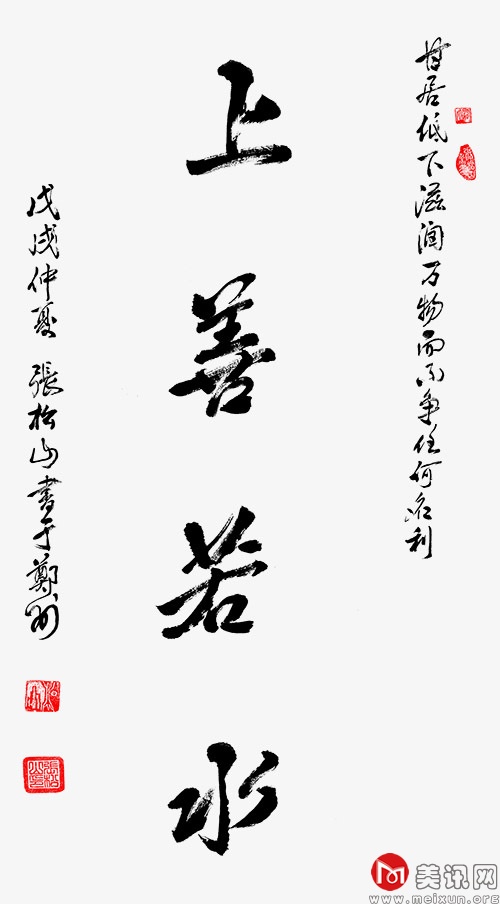 甘居低下滋润万物而不争任何名利
上善若水
戊戌仲夏 張松山書于鄭州
美讯网
www.meixun.org